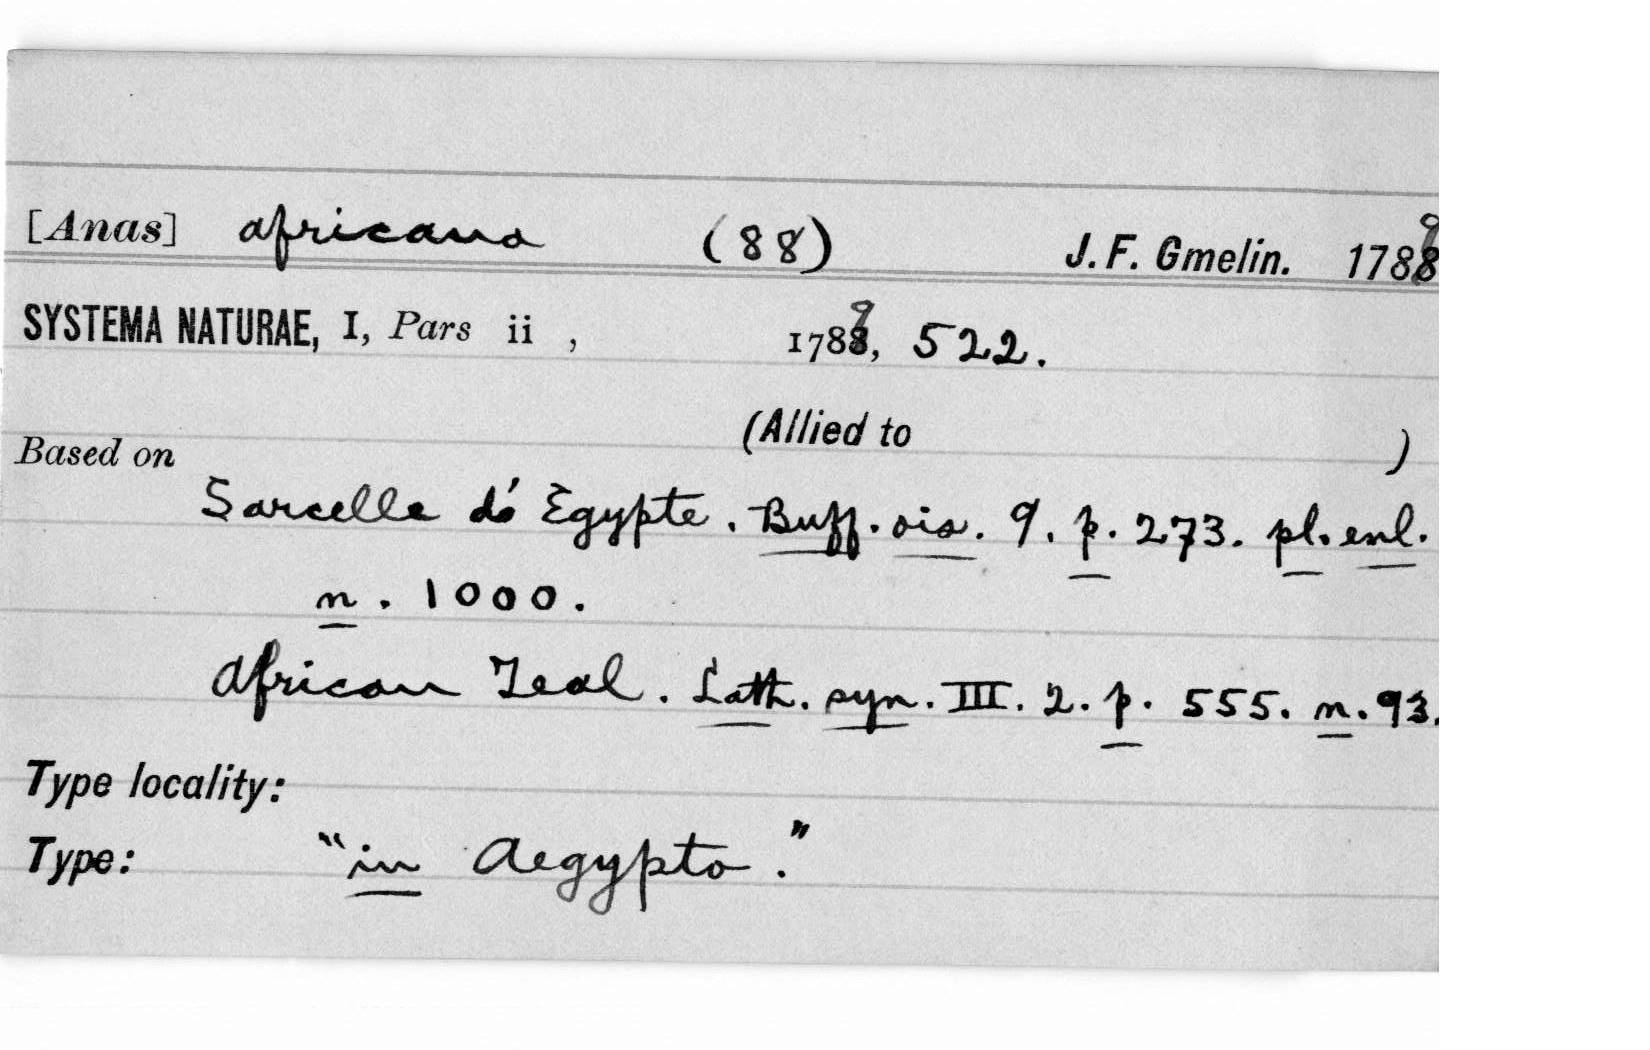 [Anas] africana (88) J. F. Gmelin. 1789
SYSTEMA NATURAE, I, Pars ii , 1789, 522.
(Allied to )
Based on
Sarcelle d' Egypte. Buff. ois. 9. p. 273. pl. enl.
n. 1000.
African Teal. Lath. syn. III. 2. p. 555. n. 93.
Type locality:
Type: "in Aegypto."